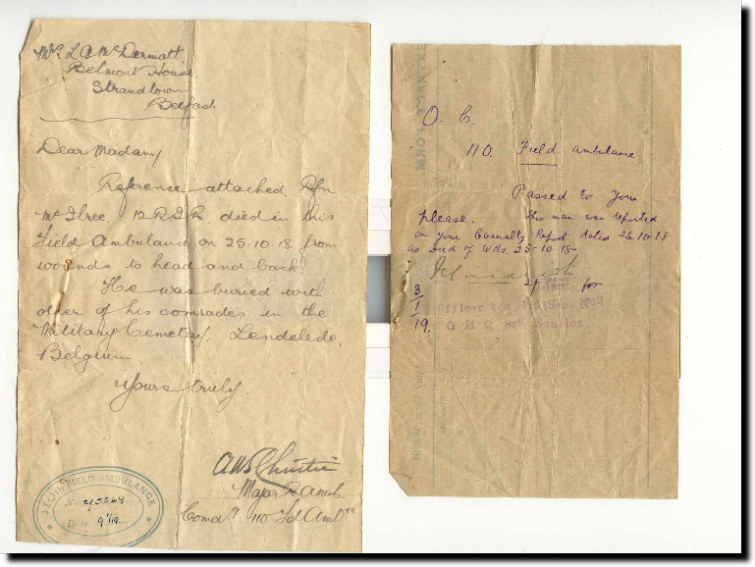 Mrs L A McDermott.
Belmont House
Strandtown
Belfast.
Dear Madam,
Reference attached. Rfn
McIlree, 12 R.I.R. died in this
Field Ambulance on 25-10-18 from
wounds to head and back.
He was buried with
other of his comrades in the
Military Cemetery, Lendelede,
Belgium.
Yours truly
AWS Christie
Major R.A.M.C.
Comdg 110 Fd Ambce
110TH FIELD AMBULANCE
9/1/19.
O. C.
110. Field Ambulance
Passed to you
please. This man was reported
on your Casualty Report dated 26.10.18
as Died of Wds. 25-10-18-
for
3/1/19.
Officer i/c
G H Q 3rd Echelon